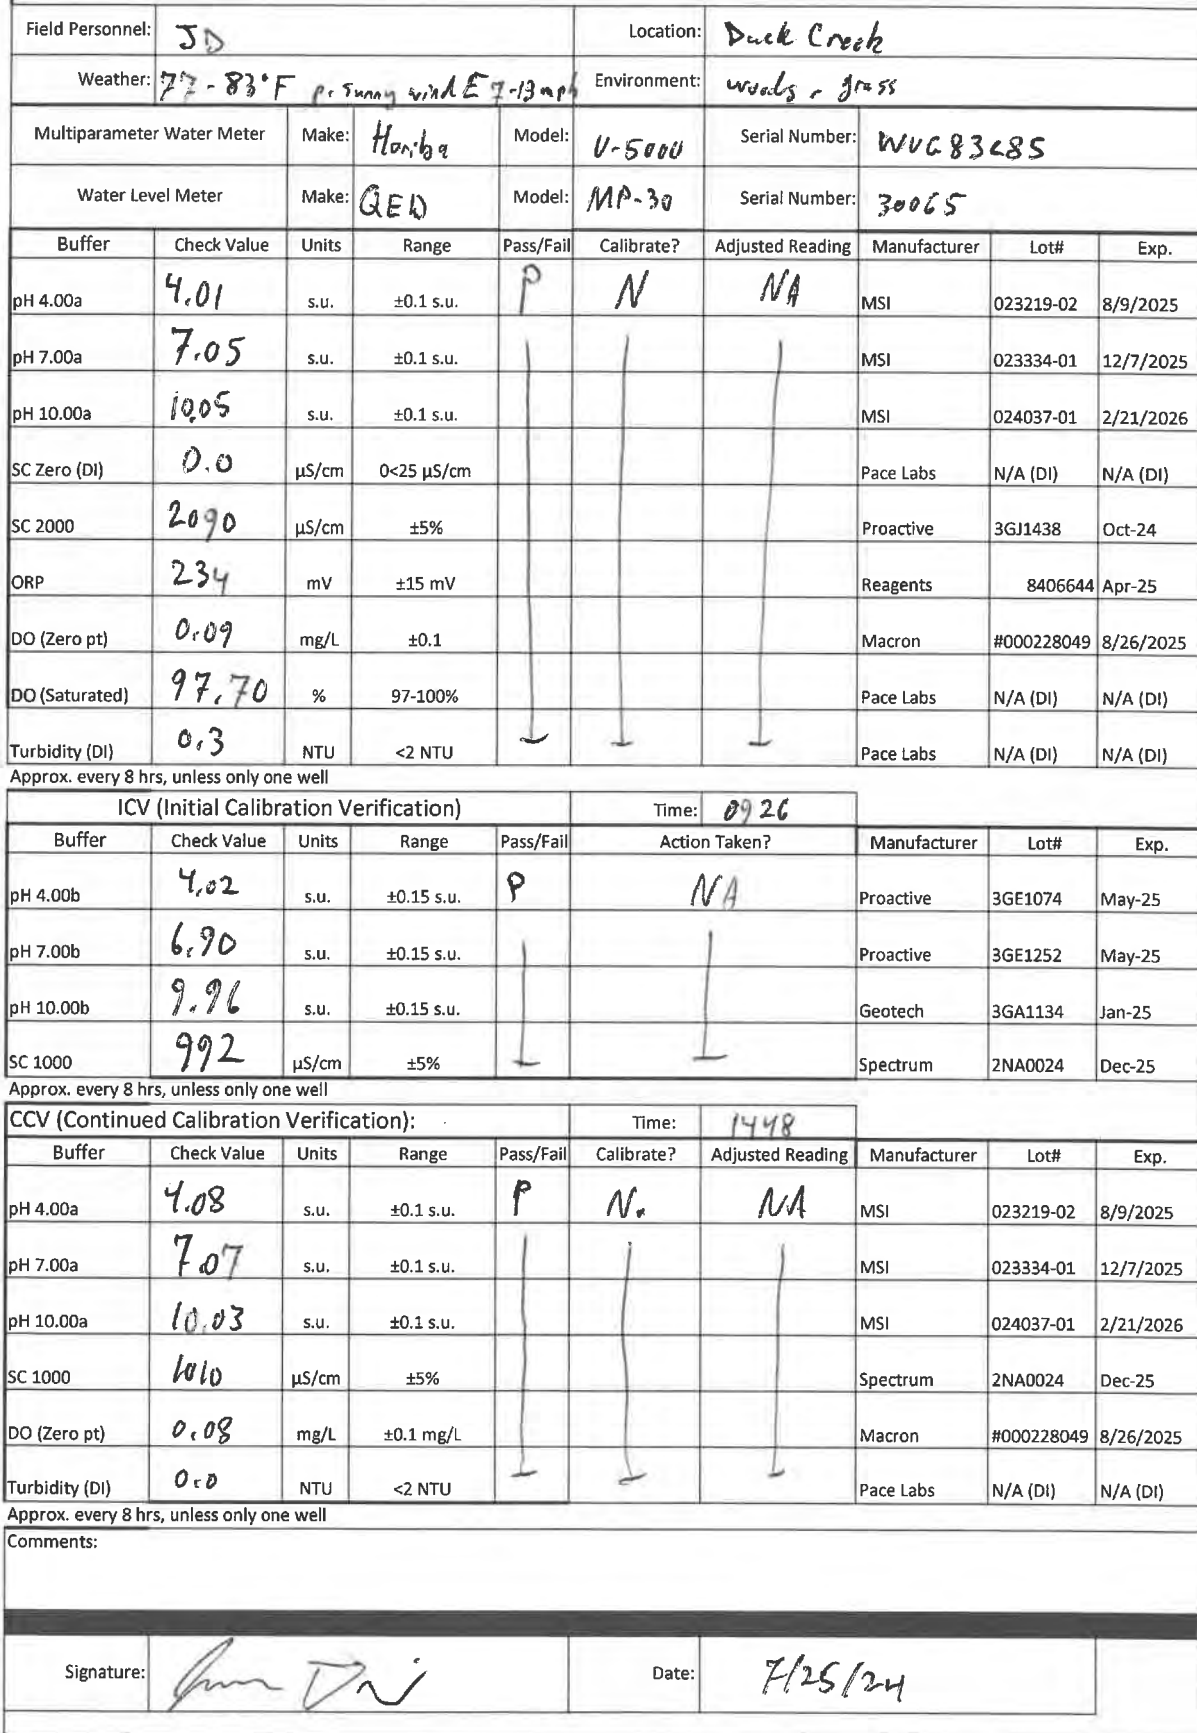 Field Personnel: JD Location: Duck Creek
Weather: 77-83°F pt sunny wind E 7-13 mph Environment: woods - grass
Multiparameter Water Meter Make: Horiba Model: U-5000 Serial Number:
Water Level Meter Make: QED Model: MP-30 Serial Number: 30065
Buffer Check Value Units Range Pass/Fail Calibrate? Adjusted Reading Manufacturer Lot# Exp.
pH 4.00a 4.01 s.u. ±0.1 s.u. P N NA MSI 023219-02 8/9/2025
pH 7.00a 7.05 s.u. ±0.1 s.u. MSI 023334-01 12/7/2025
pH 10.00a 10.05 s.u. ±0.1 s.u. MSI 024037-01 2/21/2026
SC Zero (DI) 0.0 µS/cm 0<25 µS/cm Pace Labs N/A (DI) N/A (DI)
SC 2000 2090 µS/cm ±5% Proactive 3GJ1438 Oct-24
ORP 234 mV ±15 mV Reagents 8406644 Apr-25
DO (Zero pt) 0.09 mg/L ±0.1 Macron #000228049 8/26/2025
DO (Saturated) 97.70 % 97-100% Pace Labs N/A (DI) N/A (DI)
Turbidity (DI) 0.3 NTU <2 NTU Pace Labs N/A (DI) N/A (DI)
Approx. every 8 hrs, unless only one well
ICV (Initial Calibration Verification) Time: 0926
Buffer Check Value Units Range Pass/Fail Action Taken? Manufacturer Lot# Exp.
pH 4.00b 4.02 s.u. ±0.15 s.u. P NA Proactive 3GE1074 May-25
pH 7.00b 6.90 s.u. ±0.15 s.u. Proactive 3GE1252 May-25
pH 10.00b 9.96 s.u. ±0.15 s.u. Geotech 3GA1134 Jan-25
SC 1000 992 µS/cm ±5% Spectrum 2NA0024 Dec-25
Approx. every 8 hrs, unless only one well
CCV (Continued Calibration Verification): Time: 1448
Buffer Check Value Units Range Pass/Fail Calibrate? Adjusted Reading Manufacturer Lot# Exp.
pH 4.00a 4.08 s.u. ±0.1 s.u. P N. NA MSI 023219-02 8/9/2025
pH 7.00a 7.07 s.u. ±0.1 s.u. MSI 023334-01 12/7/2025
pH 10.00a 10.03 s.u. ±0.1 s.u. MSI 024037-01 2/21/2026
SC 1000 1010 µS/cm ±5% Spectrum 2NA0024 Dec-25
DO (Zero pt) 0.08 mg/L ±0.1 mg/L Macron #000228049 8/26/2025
Turbidity (DI) 0.0 NTU <2 NTU Pace Labs N/A (DI) N/A (DI)
Approx. every 8 hrs, unless only one well
Comments:
Signature: Date: 7/25/24